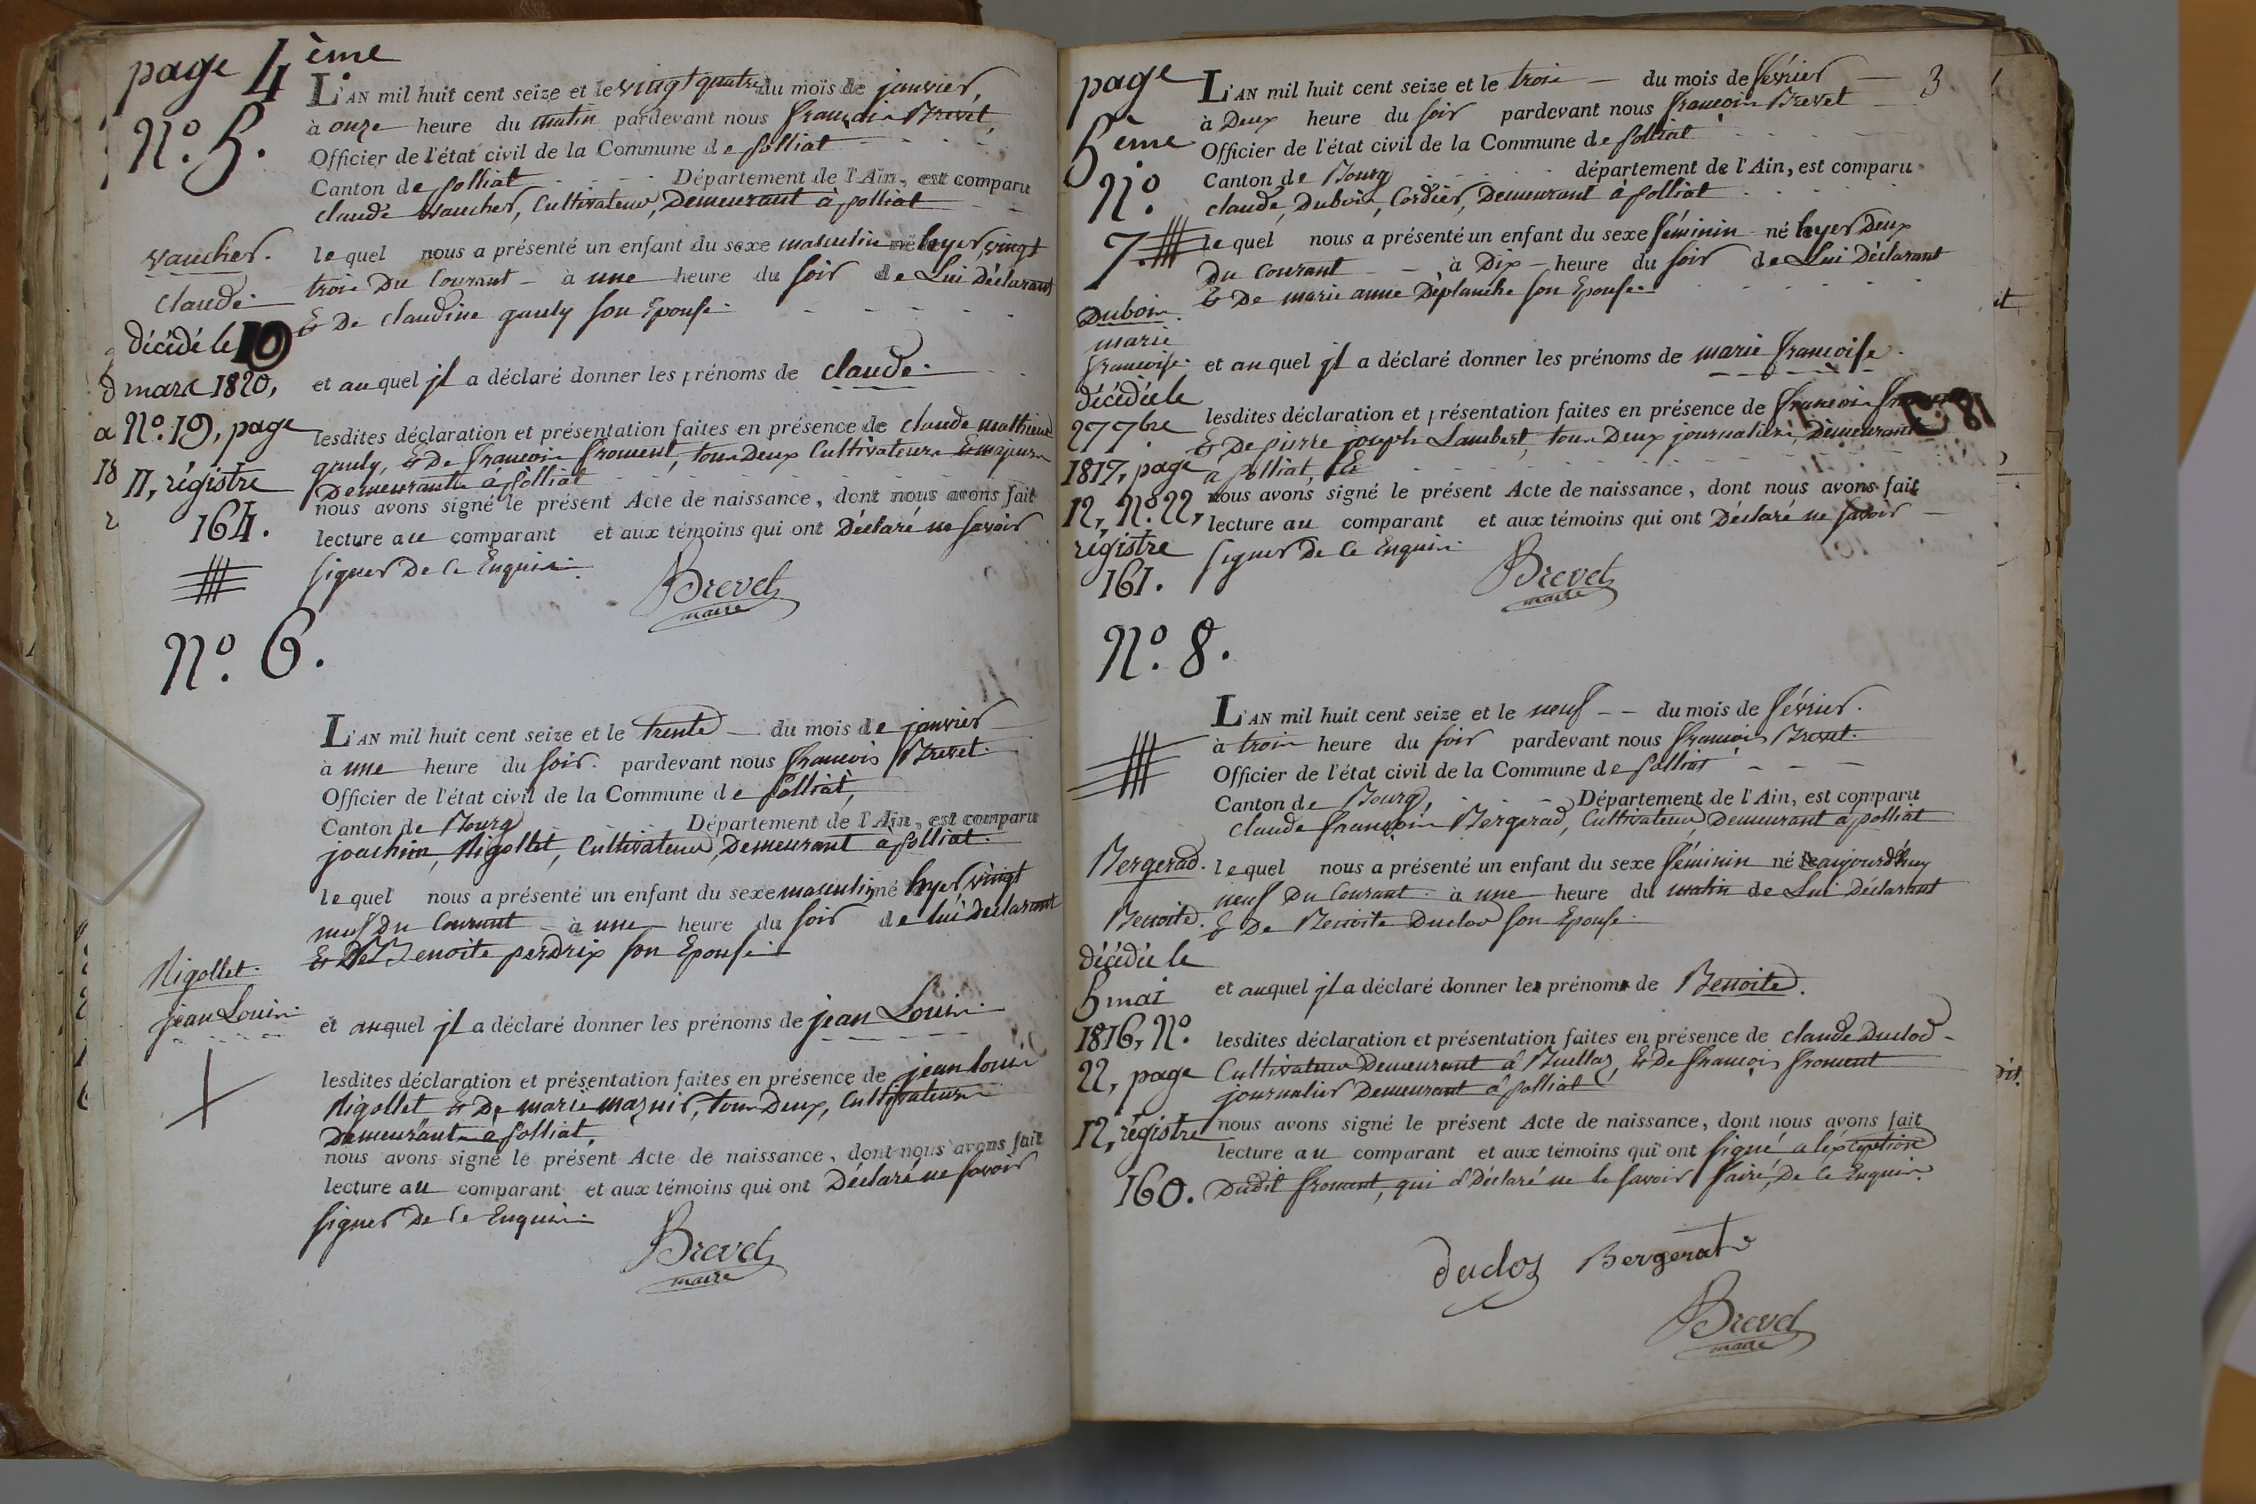 page 4 ème
L'AN mil huit cent seize et le vingt quatre du mois de janvier,
à onze heure du matin pardevant nous françois Brevet,
Officier de l'état civil de la Commune de polliat
Canton de polliat Département de l'Ain, est comparu
claude vaucher, Cultivateur, Demeurant à polliat
le quel nous a présenté un enfant du sexe masculin né hyer vingt
trois Du Courant à une heure du soir de Lui Déclarant
& De claudine gauly son Epouse
et auquel jl a déclaré donner les prénoms de claude
lesdites déclaration et présentation faites en présence de claude mathieu
gauly, & De françois froment, tous Deux Cultivateurs & majeurs
Demeurants à polliat
nous avons signé le présent Acte de naissance, dont nous avons fait
lecture au comparant et aux témoins qui ont Déclaré ne savoir
signer De Ce Enquis
Brevet
maire
Nº. 5.
vaucher.
claude.
décédé le 10
mars 1820,
Nº. 19, page
11, régistre
164.
Nº. 6.
L'AN mil huit cent seize et le trente du mois de janvier
à une heure du soir. pardevant nous françois Brevet.
Officier de l'état civil de la Commune de polliat,
Canton de Bourg Département de l'Ain, est comparu
joachim, Rigollet, Cultivateur, Demeurant à polliat.
le quel nous a présenté un enfant du sexe masculin né hyer vingt
neuf Du Courant à une heure du soir de lui déclarant
& De Benoite perdrix son Epouse
et auquel jl a déclaré donner les prénoms de jean Louis
lesdites déclaration et présentation faites en présence de jean louis
Rigollet & De marie maznir, tous Deux, Cultivateurs
Demeurants à polliat,
nous avons signé le présent Acte de naissance, dont nous avons fait
lecture au comparant et aux témoins qui ont Déclaré ne savoir
signer De Ce Enquis
Brevet
maire
Rigollet.
jean Louis
page
5ème
3
L'AN mil huit cent seize et le trois du mois de février
à Deux heure du soir pardevant nous françois Brevet
Officier de l'état civil de la Commune de polliat
Canton de Bourg département de l'Ain, est comparu
claude, Dubois, Cordier, Demeurant à polliat
le quel nous a présenté un enfant du sexe féminin né hyer Deux
Du Courant à Dix heure du soir de Lui Déclarant
& De marie anne Déplanche son Epouse
et auquel jl a déclaré donner les prénoms de marie françoise.
lesdites déclaration et présentation faites en présence de françois
& De pierre joseph Lambert, tous Deux journaliers, Demeurant
à polliat,
nous avons signé le présent Acte de naissance, dont nous avons fait
lecture au comparant et aux témoins qui ont Déclaré ne savoir
signer De Ce Enquis
Brevet
maire
Nº.
7.
Dubois
marie
françoise
décédée le
27 7bre
1817, page
12, Nº. 22,
régistre
161.
Nº. 8.
L'AN mil huit cent seize et le neuf du mois de février.
à trois heure du soir pardevant nous françois Brevet.
Officier de l'état civil de la Commune de polliat
Canton de Bourg, Département de l'Ain, est comparu
claude françois Bergerad, Cultivateur Demeurant à polliat
le quel nous a présenté un enfant du sexe féminin né aujourd'huy
neuf Du Courant à une heure du matin de Lui Déclarant
& De Benoite Duclod son Epouse
et auquel jl a déclaré donner les prénoms de Benoite.
lesdites déclaration et présentation faites en présence de claude Duclod
Cultivateur Demeurant à Buellas, & De françois froment
journalier Demeurant à polliat
nous avons signé le présent Acte de naissance, dont nous avons fait
lecture au comparant et aux témoins qui ont signé a l'éxception
Dudit froment, qui a Déclaré ne le savoir faire, De Ce Enquis
duclos Bergerat
Brevet
maire
Bergerad.
Benoite.
décédée le
5 mai
1816, Nº.
22, page
12, régistre
160.